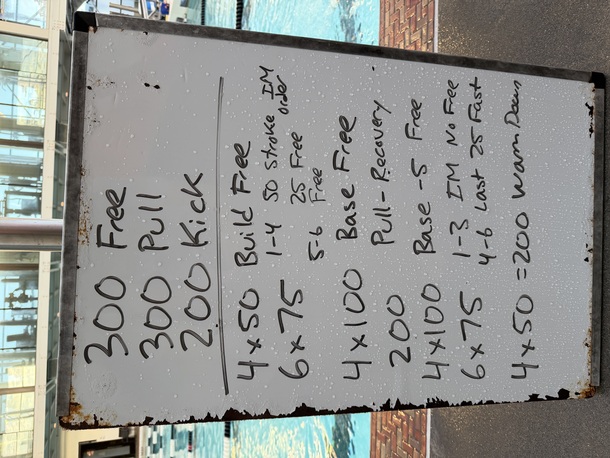 300 Free
300 Pull
200 Kick
4 x 50 Build Free
6 x 75 1-4 50 Stroke IM order
25 Free
5-6 Free
4 x 100 Base Free
200 Pull - Recovery
4 x 100 Base -5 Free
6 x 75 1-3 IM No Free
4-6 Last 25 Fast
4 x 50 = 200 Warm Down